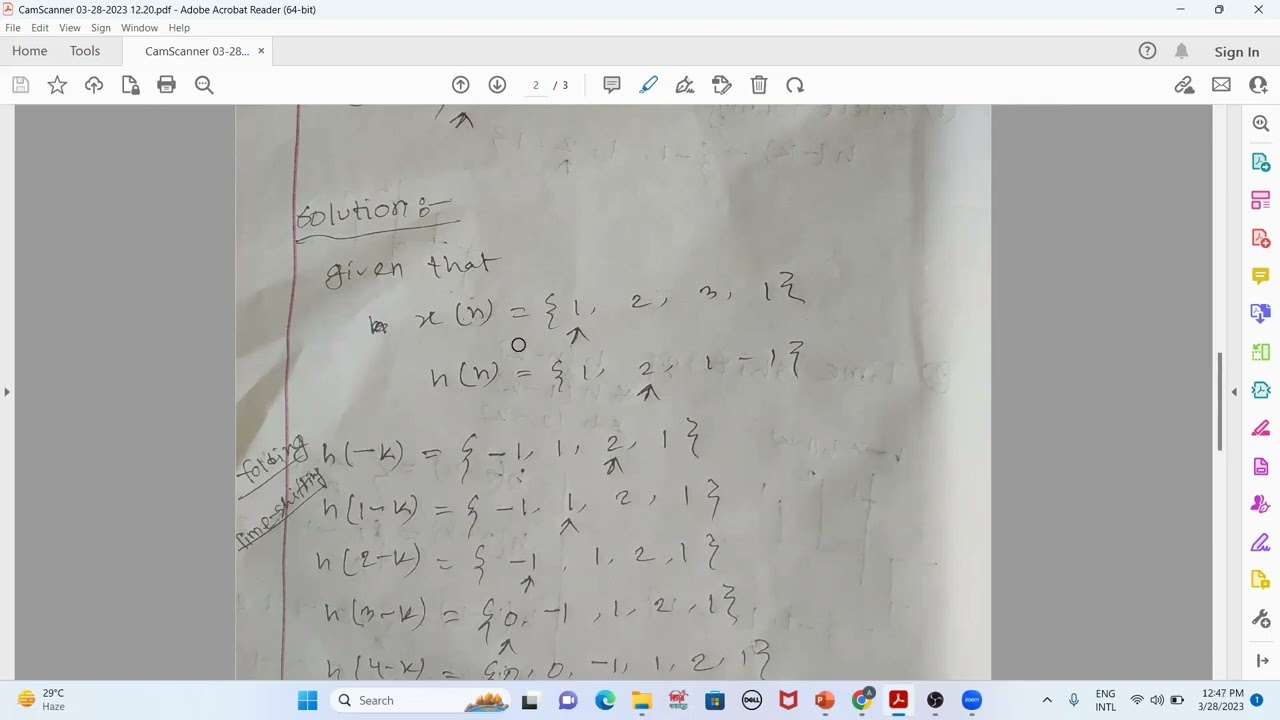 CamScanner 03-28-2023 12.20.pdf - Adobe Acrobat Reader (64-bit)
File Edit View Sign Window Help
Home Tools CamScanner 03-28... × Sign In
2 / 3
Solution :-
given that
x(n) = {1, 2, 3, 1}
↑
h(n) = {1, 2, 1 -1}
↑
folding h(-k) = { -1, 1, 2, 1 }
↑
time-shifting h(1-k) = { -1, 1, 2, 1 }
↑
h(2-k) = { -1, 1, 2, 1 }
↑
h(3-k) = {0, -1, 1, 2, 1}
↑
h(4-k) = {0, 0, -1, 1, 2, 1}
29°C
Haze
Search
DELL
zoom
ENG
INTL
12:47 PM
3/28/2023
1